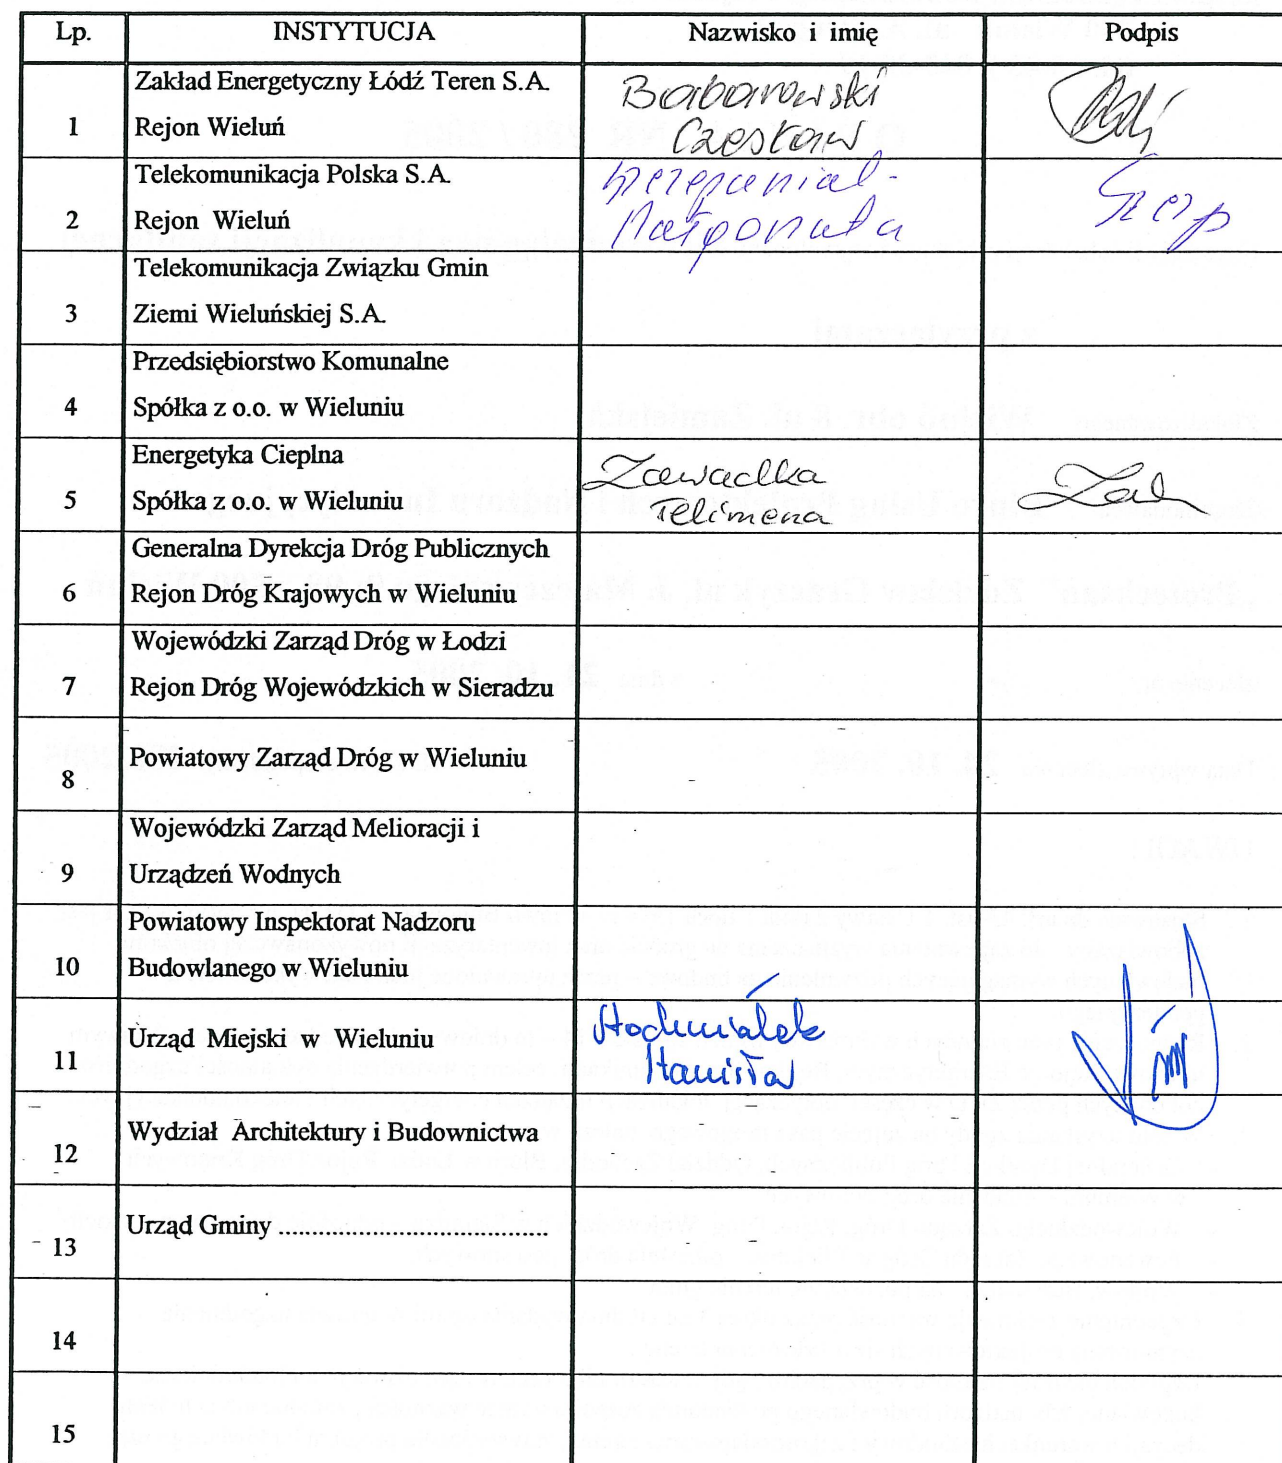 Lp. INSTYTUCJA Nazwisko i imię Podpis
Zakład Energetyczny Łódź Teren S.A. Baborowski
1 Rejon Wieluń Czesław
Telekomunikacja Polska S.A.
2 Rejon Wieluń Małgorzata Szczep
Telekomunikacja Związku Gmin
3 Ziemi Wieluńskiej S.A.
Przedsiębiorstwo Komunalne
4 Spółka z o.o. w Wieluniu
Energetyka Cieplna Zawadka
5 Spółka z o.o. w Wieluniu Telimena
Generalna Dyrekcja Dróg Publicznych
6 Rejon Dróg Krajowych w Wieluniu
Wojewódzki Zarząd Dróg w Łodzi
7 Rejon Dróg Wojewódzkich w Sieradzu
Powiatowy Zarząd Dróg w Wieluniu
8
Wojewódzki Zarząd Melioracji i
9 Urządzeń Wodnych
Powiatowy Inspektorat Nadzoru
10 Budowlanego w Wieluniu
Urząd Miejski w Wieluniu
11 Stanisław
Wydział Architektury i Budownictwa
12
Urząd Gminy ...................................
13
14
15